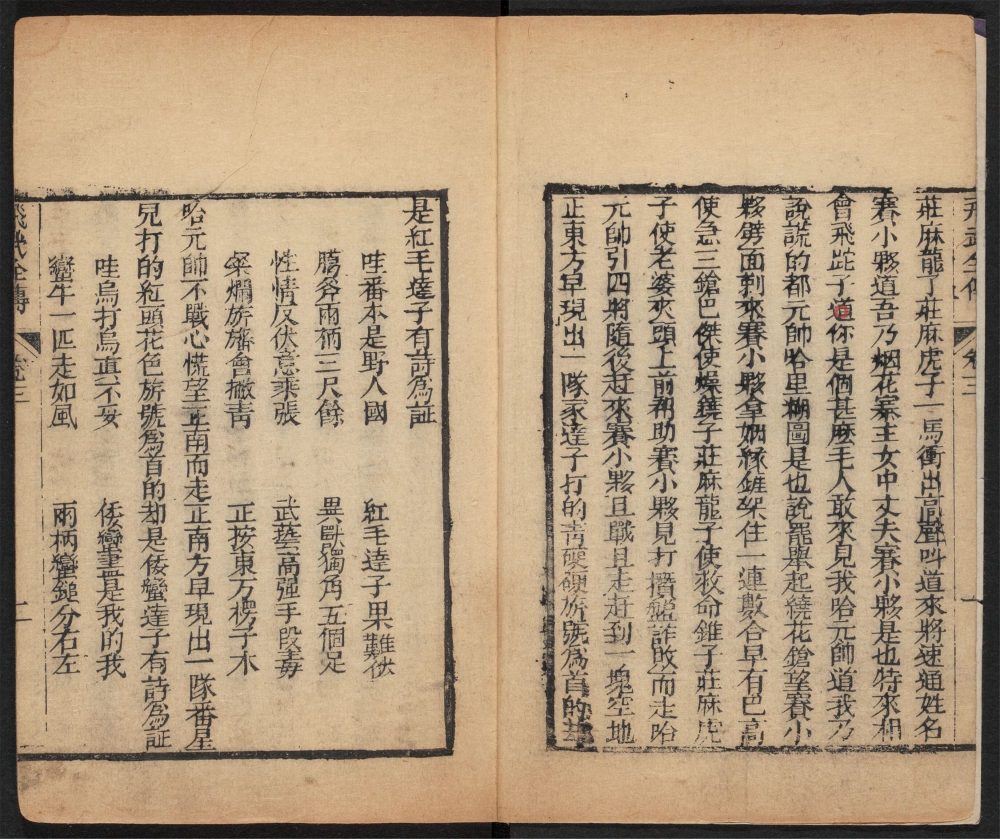 飛跎全傳 卷三 一
莊麻龍子莊麻虎子一馬衝出高聲叫道來將速通姓名
賽小夥道吾乃烟花寨主女中丈夫賽小夥是也特來相
會飛跎子道你是個甚麼毛人敢來見我哈元帥道我乃
說謊的都元帥哈里糊圖是也說罷舉起繞花鎗望賽小
夥劈面剌來賽小夥拿錐架住一連數合早有巴高
使急三鎗巴傑使燥鐃子莊麻龍子使救命錐子莊麻虎
子使老婆夾頭上前帮助賽小夥見打攢盤詐敗而走哈
元帥引四將隨後赶來賽小夥且戰且走赶到一塊空地
正東方早現出一隊家達子打的青硬硬旂號為首的却
是紅毛達子有詩為証
哇番本是野人國 紅毛達子果難伏
斧兩柄三尺餘 異獸獨角五個足
性情反伏意乘張 武藝高强手段毒
粲爛旂旛會撇青 正按東方楞子木
哈元帥不戰心慌望正南而走正南方早現出一隊番星
兒打的紅頭花色旂號為首的却是倭蠻達子有詩為証
哇烏打烏真不妥 倭蠻書是我的我
蠻牛一匹走如風 兩柄蠻鎚分右左
飛跎全傳 卷三 二